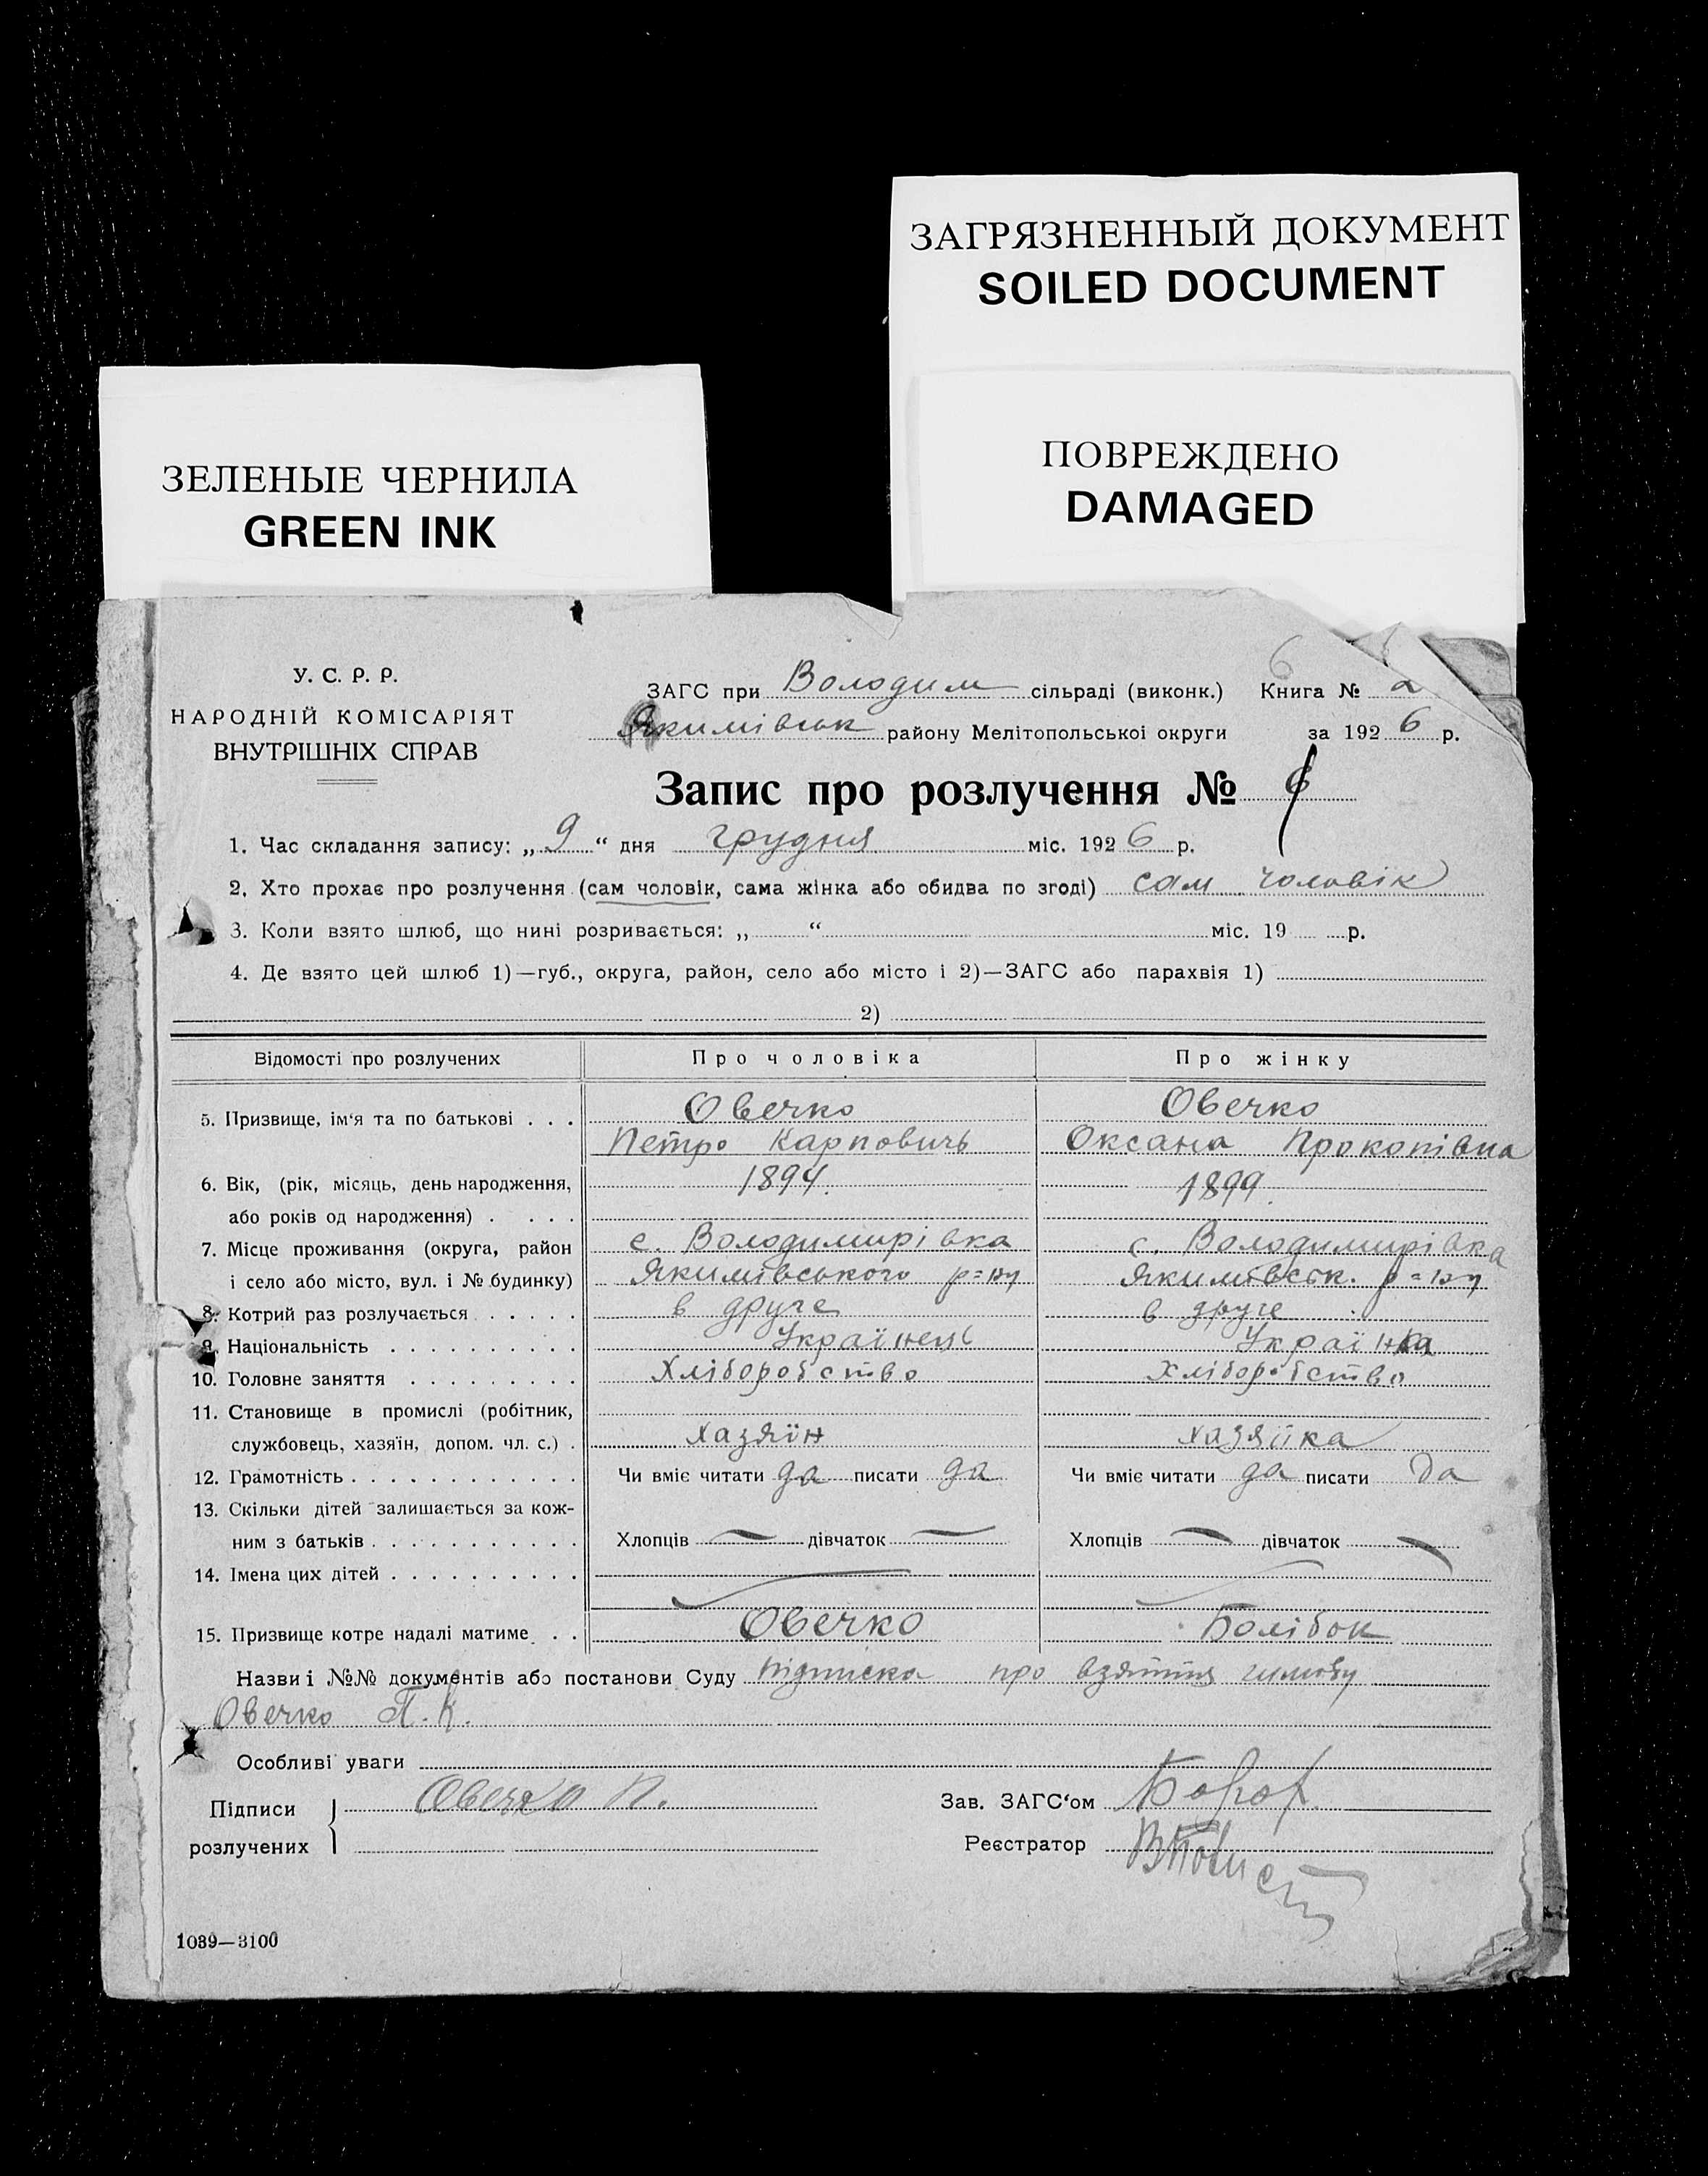 ЗАГРЯЗНЕННЫЙ ДОКУМЕНТ
SOILED DOCUMENT
ПОВРЕЖДЕНО
DAMAGED
ЗЕЛЕНЫЕ ЧЕРНИЛА
GREEN INK
У. С. Р. Р.
НАРОДНІЙ КОМІСАРІЯТ
ВНУТРІШНІХ СПРАВ
6
ЗАГС при Володим сільраді (виконк.) Книга № 2
Якимівськ району Мелітопольської округи за 1926 р.
Запис про розлучення № 6
1. Час складання запису: „ 9 “ дня грудня міс. 1926 р.
2. Хто прохає про розлучення (сам чоловік, сама жінка або обидва по згоді) сам чоловік
3. Коли взято шлюб, що нині розривається: „ “ міс. 19 р.
4. Де взято цей шлюб 1)—губ., округа, район, село або місто і 2)—ЗАГС або парахвія 1)
2)
Відомості про розлучених Про чоловіка Про жінку
5. Призвище, ім‘я та по батькові . . . Овечко Овечко
Петро Карповичь Оксана Прокопівна
6. Вік, (рік, місяць, день народження, 1894. 1899.
або років од народження) . . . .
7. Місце проживання (округа, район с. Володимирівка с. Володимирівка
і село або місто, вул. і № будинку) Якимівського р=ну Якимівськ. р=ну
8. Котрий раз розлучається . . . . . в друге в друге
9. Національність . . . . . . . . . . Українець Українка
10. Головне заняття . . . . . . . . . Хліборобство Хліборобство
11. Становище в промислі (робітник,
службовець, хазяїн, допом. чл. с.) . Хазяїн Хазяйка
12. Грамотність . . . . . . . . . . . . Чи вміє читати да писати да Чи вміє читати да писати да
13. Скільки дітей залишається за кож-
ним з батьків . . . . . . . . . . . Хлопців — дівчаток — Хлопців — дівчаток —
14. Імена цих дітей . . . . . . . . . .
15. Призвище котре надалі матиме . . Овечко Болібок
Назви і №№ документів або постанови Суду підписка про взяття
Овечко П. К.
Особливі уваги
Підписи Овечко П. Зав. ЗАГС‘ом
розлучених Реєстратор
1039—3100